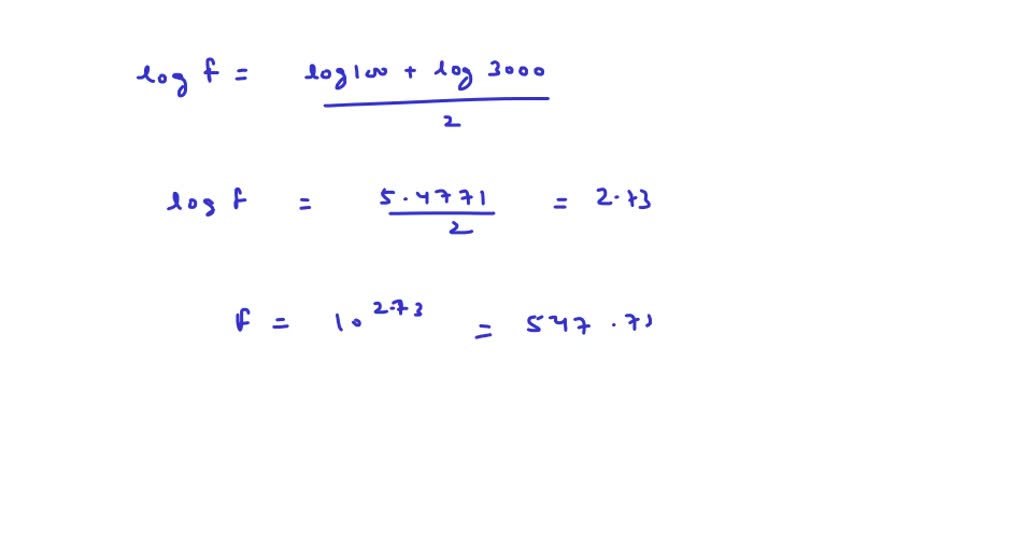 log f = log 100 + log 3000
2
log f = 5.4771 = 2.73
2
f = 10^2.73 = 547.71